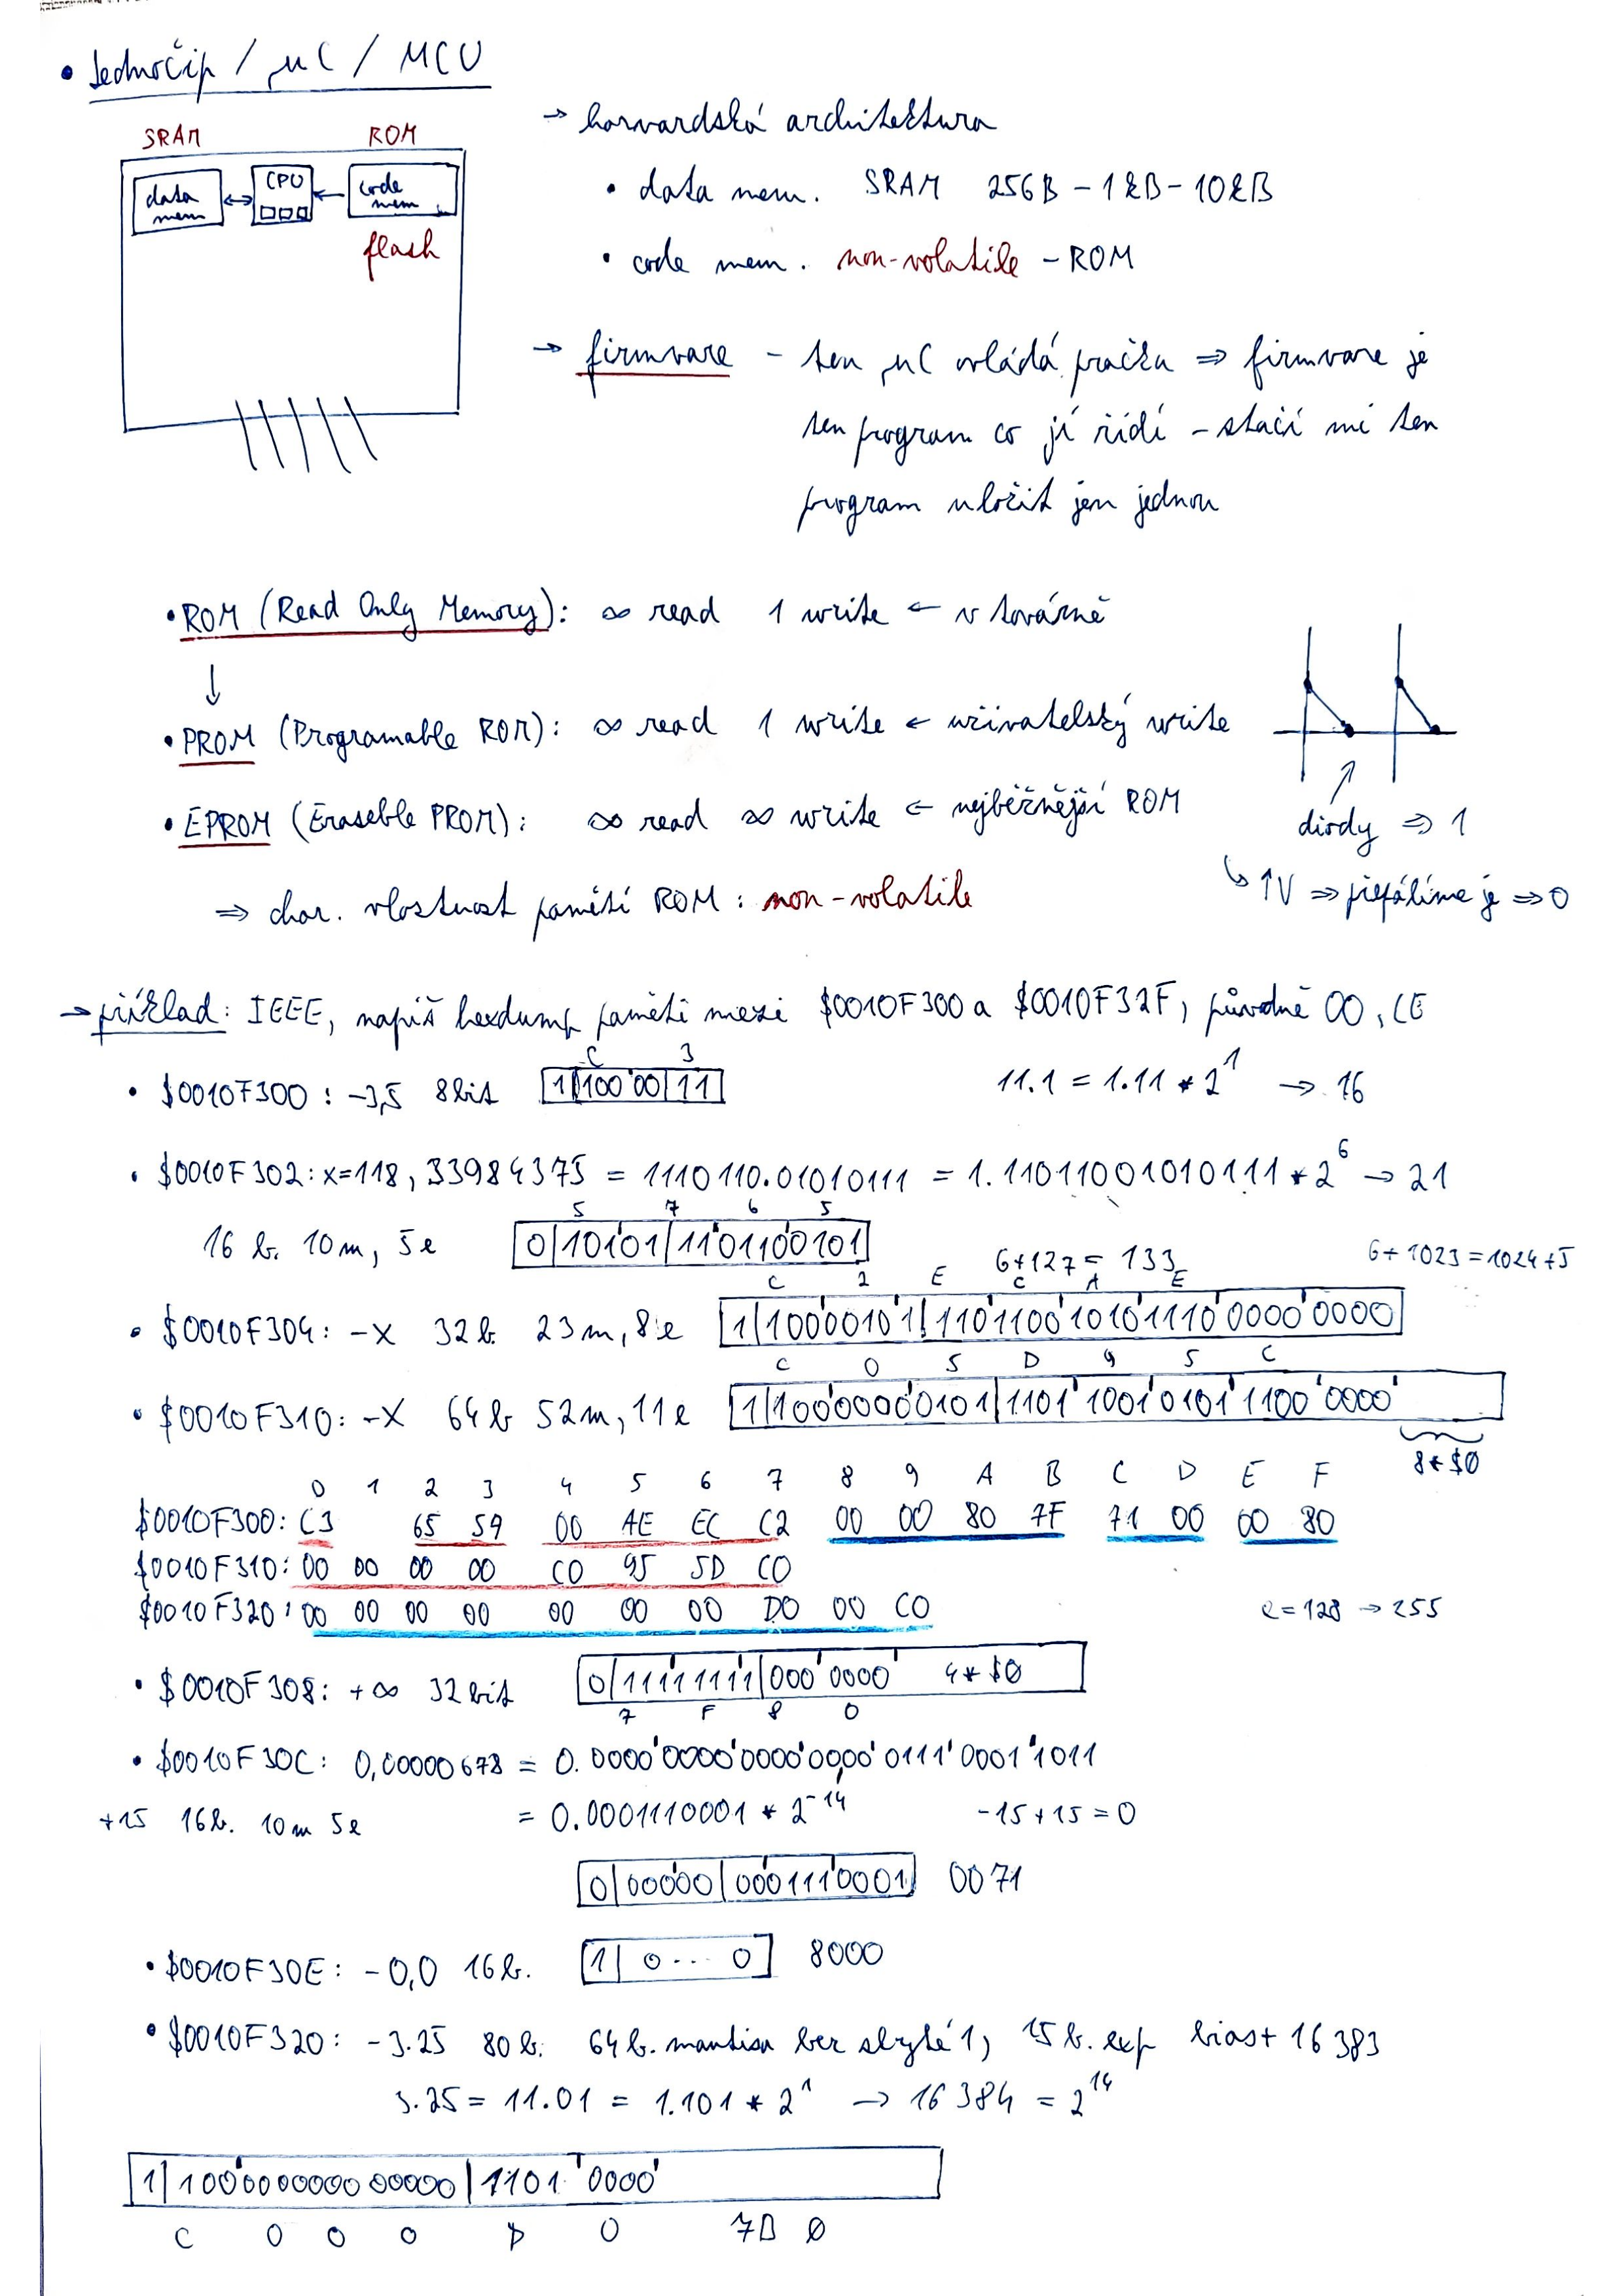 • Jednočip / μC / MCU
SRAM ROM
data mem ↔ CPU ← code mem
flash
→ harvardská architektura
• data mem. SRAM 256B – 1kB – 10kB
• code mem. non-volatile – ROM
→ firmware – ten μC ovládá pračku ⇒ firmware je
ten program co jí řídí – stačí mi ten
program uložit jen jednou
• ROM (Read Only Memory): ∞ read 1 write ← v továrně
↓
• PROM (Programable ROM): ∞ read 1 write ← uživatelský write
• EPROM (Eraseble PROM): ∞ read ∞ write ← nejběžnější ROM
diody ⇒ 1
↳ ↑V ⇒ přepálíme je ⇒ 0
⇒ char. vlastnost pamětí ROM: non-volatile
→ příklad: IEEE, napiš hexdump paměti mezi $0010F300 a $0010F32F, původně 00, LE
C 3
• $0010F300: -3,5 8bit 1|100'00|11 11.1 = 1.11 * 2^1 → 16
• $0010F302: x=118,33984375 = 1110110.01010111 = 1.11011001010111 * 2^6 → 21
5 7 6 5
16 b. 10m, 5e 0|10101|1101100101
6+127 = 133 6+1023 = 1024+5
C 2 E C A E
• $0010F304: -x 32b 23m, 8e 1|10000101|11011001010111000000000
C 0 5 D 9 5 C
• $0010F310: -x 64b 52m, 11e 1|10000000101|1101'1001'0101'1100'0000'
8*$0
0 1 2 3 4 5 6 7 8 9 A B C D E F
$0010F300: C3 65 59 00 AE EC C2 00 00 80 7F 71 00 00 80
$0010F310: 00 00 00 00 C0 95 5D C0
$0010F320: 00 00 00 00 00 00 00 D0 00 C0
e=128 → 255
• $0010F308: +∞ 32bit 0|11111111|000'0000' 4*$0
7 F 8 0
• $0010F30C: 0,00000678 = 0.0000'0000'0000'0000'0111'0001'1011
+15 16b. 10m 5e = 0.0001110001 * 2^-14 -15+15=0
0|00000|0001110001 0071
• $0010F30E: -0,0 16b. 1| 0...0 8000
• $0010F320: -3.25 80b. 64b. mantisa bez skryté 1, 15b. exp bias+16383
3.25 = 11.01 = 1.101 * 2^1 → 16384 = 2^14
1|100000000000000|1101'0000'
C 0 0 0 D 0 7B 0